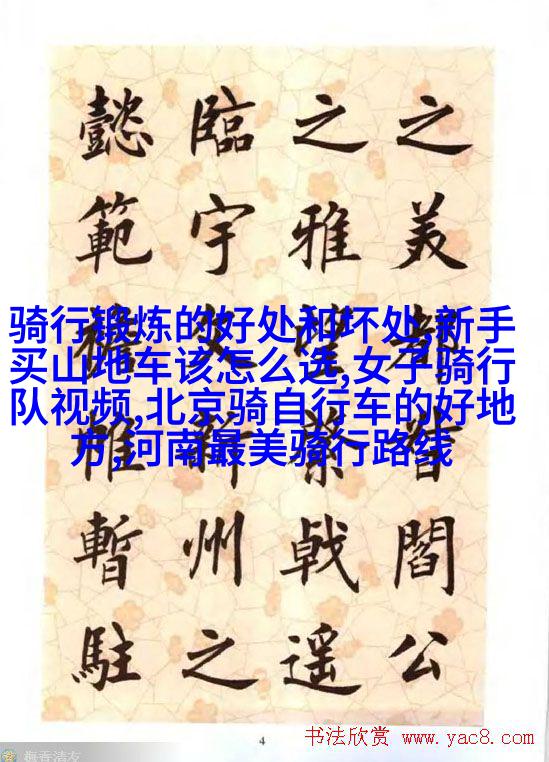 之美都督閻公
之雅望棨戟遥
臨宇文新州之
懿範襜帷暫駐
骑行锻炼的好处和坏处,新手
买山地车该怎么选,女子骑行
队视频,北京骑自行车的好地
方,河南最美骑行路线
4
书法欣赏 www.yac8.com